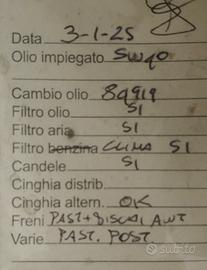 Data 3-1-25
Olio impiegato SW40
Cambio olio 89919
Filtro olio SI
Filtro aria SI
Filtro benzina CLIMA SI
Candele SI
Cinghia distrib.
Cinghia altern. OK
Freni PAST+DISCHI ANT
Varie PAST. POST
subito